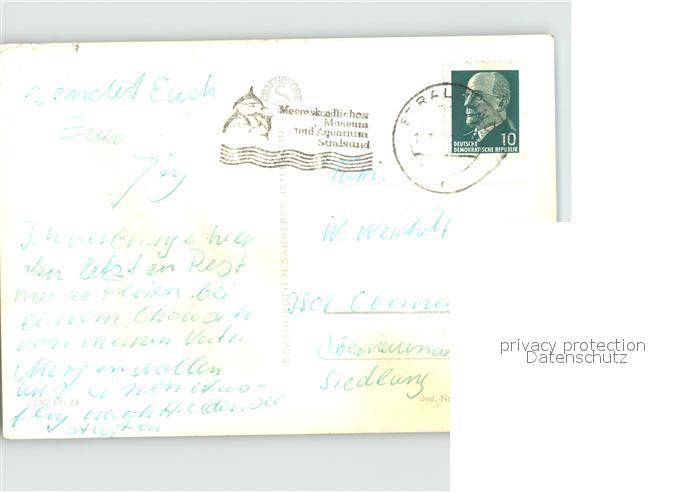 sendet Euch
Euer
Jörg
Ich verbringe hier
den letzten Rest
meiner Ferien bei
einem
von meinem
Morgen wollen
wir einen Aus-
flug nach Hiddensee
starten
GRAPHOKOPIE
Meereskundliches
Museum
und Aquarium
Stralsund
STRALS
10
DEUTSCHE
DEMOKRATISCHE REPUBLIK
Fam.
W. Weichelt
Siedlung
GRAPHOKOPIE H. SANDER KG.
Best.-Nr
privacy protection
Datenschutz